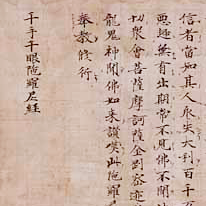 信者當知其人永失大利百千
惡趣無有出期常不見佛不聞
切衆會菩薩摩訶薩金剛密迹
龍鬼神聞佛如来讃嘆此陁羅尼
奉教修行
千手千眼陁羅尼經